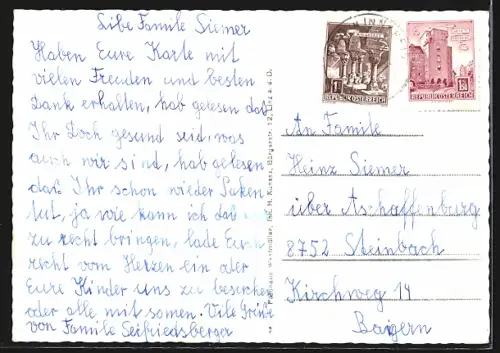 Libe Famile Siemer
Haben Eure Karte mit
vielen Freuden und besten
Dank erhalten, hab gelesen das
Ihr Doch gesund seid, was
auch wir sind, hab gelesen
das Ihr schon wieder Paken
tut, ja wie kann ich das
zu recht bringen, lade Euch
recht vom Herzen ein oder
Eure Kinder uns zu besuchen
oder alle mit somen. Vile Grüße
von Famile Seifriedsberger
REPUBLIK ÖSTERREICH
REPUBLIK ÖSTERREICH
An Famile
Heinz Siemer
über Aschaffenburg
8752 Steinbach
Kirchweg 14
Bayern
Inh. H. Kunesz, Bürgerstr. 12, Linz a. D.